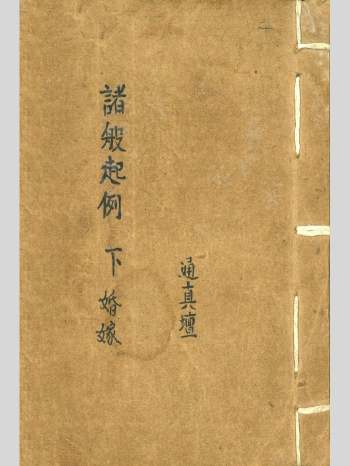 通真壇
諸般起例 下 婚嫁